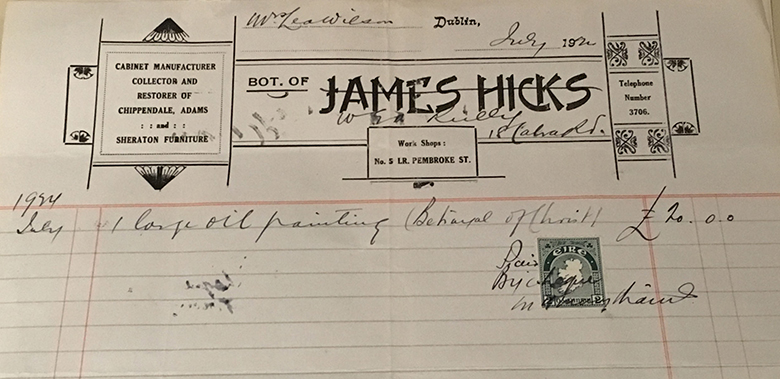 Mrs Lea Wilson Dublin,
July 192
CABINET MANUFACTURER
COLLECTOR AND
RESTORER OF
CHIPPENDALE, ADAMS
: : and : :
SHERATON FURNITURE
BOT. OF JAMES HICKS
Telephone
Number
3706.
Work Shops :
No. 5 LR. PEMBROKE ST.
1924
July 1 large oil painting (Betrayal of Christ) £20.0.0
ÉIRE
Paid
By cheque